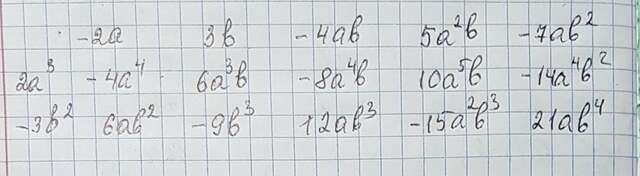 -2a 3b -4ab 5a²b -7ab²
2a³ -4a⁴ 6a³b -8a⁴b 10a⁵b -14a⁴b²
-3b² 6ab² -9b³ 12ab³ -15a²b³ 21ab⁴